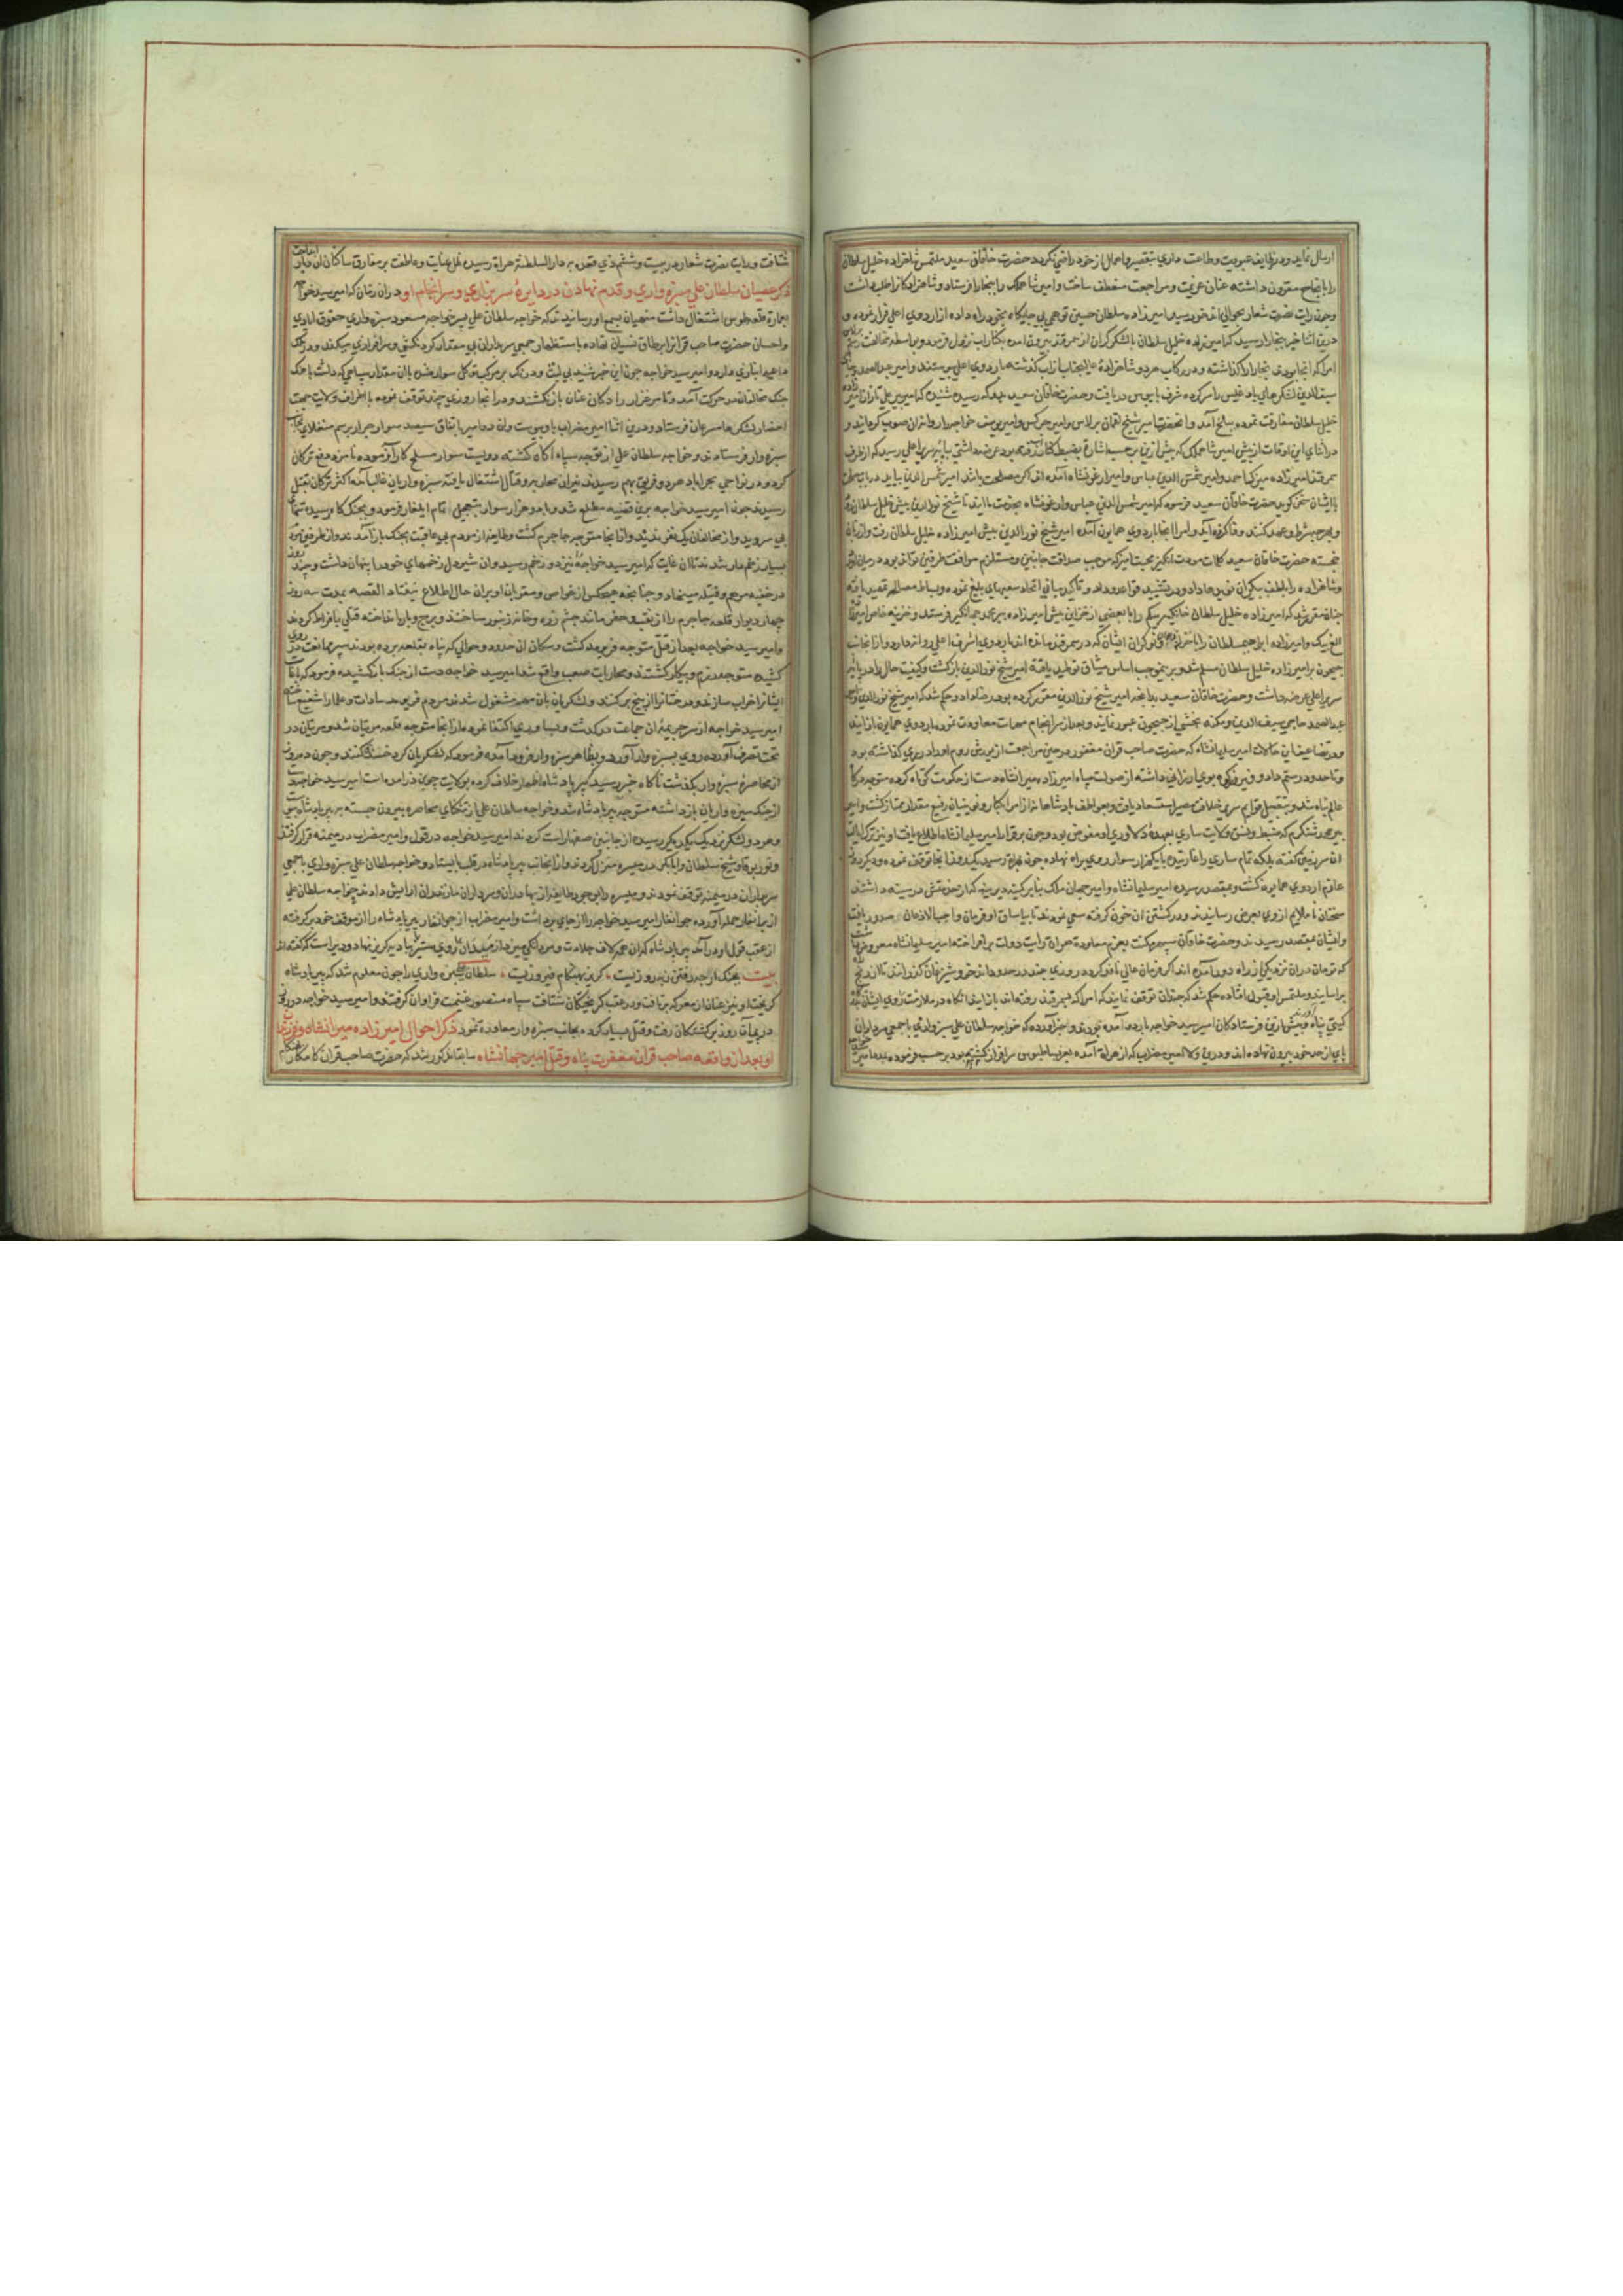 ارسال نماید و در وظایف عبودیت و طاعت داری تقصیر و اهمال از خود راضی نگردد حضرت خاقان سعید ملتمس شاهزاده خلیل سلطان
را بانجاح مقرون داشته عنان عزیمت و مراجعت منعطف ساخت و امیر شاهملک را ببخارا فرستاد و شاهزادکانرا طلب داشت
و چون رایت نصرت شعار بحوالی اندخود رسید امیرزاده سلطان حسین توهمی بی جایگاه بخود راه داده از اردوی اعلی فرار نموده و
درین اثنا خبر ببخارا رسید که امیرزاده خلیل سلطان با لشکر گران از سمرقند بیرون آمده بکنار آب نزول فرمود و بواسطه مخالفت
امرا که آنجا بودند بخارا را گذاشته و در رکاب هر دو شاهزادۀ عالیجناب از آب گذشته باردوی اعلی پیوستند و امیر
سیف الدین لشکرهای بادغیس را سر کرده شرف پایبوس دریافت و حضرت خاقان سعید
خلیل سلطان مفارقت نموده ببلخ آمد و آنحضرت امیر شیخ لقمان برلاس و امیر چرکس و امیر یوسف خواجه را
در اثنای این اوقات از پیش امیر شاهملک که پیش ازین بموجب اشارة بضبط
سمرقند امیرزاده میرک احمد و امیر شمس الدین عباس و امیر ارغونشاه آمده اند اگر مصلحت باشد امیر شمس الدین بیاید
با ایشان سخن گوید حضرت خاقان سعید فرمود که امیر شمس الدین عباس و ارغونشاه بخدمت ما آیند تا شیخ نورالدین پیش خلیل سلطان رود
و بهرچه شرط و عهد کنند وفا کرده آید و امرا آنجا باردوی همایون آمده امیر شیخ نورالدین پیش امیرزاده خلیل سلطان رفت و از زبان
خجسته حضرت خاقان سعید کلمات مودت انگیز محبت آمیز که موجب صداقت جانبین و مستلزم موافقت طرفین تواند بود در میان آورد
و شاهزاده را بلطف بیکران نوید داد و در تشیید قواعد وداد و تأکید مبانی اتحاد سعیهای بلیغ نموده و بساط مصالحه تمهید یافته
چنان مقرر شد که امیرزاده خلیل سلطان را با بعضی از خزاین پیش امیرزاده پیر محمد جهانگیر فرستد و خزینه خاص امیرزاده
الغ بیک و امیرزاده ابراهیم سلطان را با نوکران ایشان که در سمرقند مانده اند باردوی اشرف اعلی روانه دارد و از آنجانب
جیحون بر امیرزاده خلیل سلطان مسلم شد و برینموجب اساس میثاق توطید یافته امیر شیخ نورالدین بازگشت و کیفیت حال را در پایه
سریر اعلی عرضه داشت و حضرت خاقان سعید بدانچه امیر شیخ نورالدین مقرر کرده بود رضا داد و حکم شد که امیر شیخ نورالدین
عبدالصمد حاجی سیف الدین و بخشی از جیحون عبور نمایند و بعد از سرانجام مهمات معاودت نموده باردوی همایون باز آیند
و در تضاعیف این حالات امیر سلیمانشاه که حضرت صاحب قران مغفور در حین مراجعت از یورش روم او را در ری گذاشته بود
و تا حدود رستمدار و فیروزکوه بوی ارزانی داشته از صولت سپاه امیرزاده میرانشاه دست از حکومت کوتاه کرده متوجه درگاه
عالم پناه شد و بتقبیل قوایم سریر خلافت مصیر استسعاد یافت و بعواطف پادشاهانه از امرا کبار و نوینیان رفیع مقدار ممتاز گشت و امیر
پیر محمد شنکرم که ضبط و نسق ولایت ساری بعهدۀ دلاوری او مفوض بود و چون بر فرار امیر سلیمانشاه اطلاع یافت او نیز ترک ایالت
آن سرزمین گفته بلکه تمام ساری را غارتیده با یکهزار سوار روی براه نهاده چون بهراة رسید یکدو روز آنجا توقف نموده و دیگر روز
عازم اردوی همایون گشت و بمقصد رسیده امیر سلیمانشاه و امیر جهان ملک بنا بر کینه دیرینه که از
سخنان ناملایم ازوی بعرض رسانیدند و در کشتن آن خون گرفته سعی نمودند تا بیاساق او فرمان واجب الاذعان صدور یافت
و ایشان بمقصد رسیدند و حضرت خاقان سپهر مکنت بعزم معاودة هراة رایت دولت برافراخته امیر سلیمانشاه معروض داشت
که نوکران از راه دور آمده اند اگر فرمان عالی نافذ گردد روزی چند در حدود اندخود و شبرغان گذرانند تا از رنج راه
برآسایند و ملتمس او قبول افتاده حکم شد که چندان توقف نمایند که امرا که بسمرقند رفته اند باز آیند آنگاه در ملازمت روی ایشان
گیتی پناه و پیش ازین فرستادگان امیر سید خواجه باردو آمده بودند و خبر آورده که خواجه سلطان علی سبزواری با جمعی سربداران
پای از حد خود بیرون نهاده اند و درین ولا امیر مضراب که از هراة آمده بعز بساط بوسی سرافراز گشته بود بر حسب فرموده
شتافت و رایت نصرت شعار در بیست و ششم ذی قعده بدارالسلطنة هراة رسیده ظل عنایت و عاطفت بر مفارق ساکنان آن دیار
ذکر عصیان سلطان علی سبزواری و قدم نهادن در دایرۀ سربداری و سرانجام او در آن زمان که امیر سید خواجه
بعمارة قلعه طوس اشتغال داشت منهیان بسمع او رسانیدند که خواجه سلطان علی پسر خواجه مسعود سبزواری حقوق ایادی
و احسان حضرت صاحب قرانرا بر طاق نسیان نهاده باستظهار جمعی سربداران بی مقدار گردنکشی و سرافرازی میکند و در ملک
ما عیه انبازی دارد و امیر سید خواجه چون این خبر شنید بی لبث و درنگ بر مرکب توکل سوار شده با آن مقدار سپاهی که داشت بآهنگ
جنگ مخالفان در حرکت آمد و تا مرغزار رادکان عنان باز نکشیدند و در آنجا روزی چند توقف نموده باطراف ولایت جهت
احضار لشکرها مسرعان فرستاد و درین اثنا امیر مضراب باو پیوست و آن دو امیر باتفاق سیصد سوار جرار برسم منغلای بجانب
سبزوار فرستادند و خواجه سلطان علی از توجه سپاه آگاه گشته دویست سوار مسلح کارآزموده نامزد دفع ترکان
کرد و در نواحی بحراباد هر دو فریق بهم رسیدند نیران محاربه و قتال اشتعال یافته سبزواریان غالب آمده اکثر ترکان بقتل
رسیدند چون امیر سید خواجه برین قضیه مطلع شد و با دو هزار سوار بتعجیل تمام ایلغار فرمود و بجنگ گاه رسیده تنهای
بی سر دید و از مخالفان یک نفر ندیدند و از آنجا متوجه جاجرم گشت و طایفه از مردم بی عاقبت بجنگ باز آمدند و از طرفین مردم
بسیار زخم دار شدند تا آن غایت که امیر سید خواجه را نیز دو زخم رسید و آن شیردل زخمهای خود را پنهان داشت و چند روز
در خفیه مرهم و فتیله مینهاد و چنانچه هیچکس از خواص و مقربان او بر آن حال اطلاع نیفتاد القصه بمدت سه روز
چهار دیوار قلعه جاجرم را از نقب و حفر مانند چشم زره و خانه زنبور ساختند و برج و باره انداخته قتلی بافراط کردند
و امیر سید خواجه بعد از قتل متوجه فریومد گشت و سکان آن حدود و حوالی که پناه بقلعه برده بودند سپر ممانعت در روی
کشیده متوجه رزم و پیکار گشتند و محاربات صعب واقع شد امیر سید خواجه دست از جنگ باز کشیده فرمود که باغات
ایشانرا خراب سازند و درختانرا از بیخ برکنند و لشکریان بآن مهم مشغول شدند مردم فریومد سادات و علما را شفیع ساخته
امیر سید خواجه از سر جریمۀ آن جماعت درگذشت و بساوری اکتفا نموده و از آنجا متوجه قلعه مزینان شد و مزینان در
تحت تصرف آورده روی بسبزوار آورد و بظاهر سبزوار فرود آمده فرمود که لشکریان گرد خندق کنند و چون ده روز
از محاصرۀ سبزوار بگذشت ناگاه خبر رسید که پیر پادشاه اظهار خلاف کرده بولایت جوین درآمده است امیر سید خواجه دست
از جنگ سبزواریان باز داشته متوجه پیر پادشاه شد و خواجه سلطان علی از تنگنای محاصره بیرون جسته به پیر پادشاه پیوست
و هر دو لشکر نزدیک یکدیگر رسیده از جانبین صفها راست کردند امیر سید خواجه در قول و امیر مضراب در میمنه قرار گرفتند
و شیخ سلطان و ابابکر در میسره منزل گزیدند و از آنجانب پیر پادشاه در قلب بایستاد و خواجه سلطان علی سبزواری با جمعی
سربداران در میمنه توقف نمودند و میسره را بوجود طایفه از بهادران و سرداران مازندران آرایش دادند خواجه سلطان علی
از برانغار حمله آورده جوانغار امیر سید خواجه را از جای برداشت و امیر مضراب از جوانغار پیر پادشاه را از موقف خود برگرفته
از عقب قول او درآمد پیر پادشاه که از آن همه لاف جلادت و مردانگی میزد از میدان روی بستیز پا در گریز نهاد و دیر است که گفته اند
بیت بجنگ ارچه رفتن ز بهروزیست * گریز بهنگام فیروزیست * سلطان علی سبزواری را چون معلوم شد که پیر پادشاه
گریخت او نیز عنان از معرکه برتافت و در عقب گریختگان شتافت سپاه منصور غنیمت فراوان گرفتند و امیر سید خواجه در پی
روز برگشتگان رفت و قتل بسیار کرده بجانب سبزوار معاودة نمود ذکر احوال امیرزاده میرانشاه و فرزندان
او بعد از واقعه صاحب قران مغفرت پناه و قتل امیر جهانشاه سابقا مذکور شد که حضرت صاحب قران کامکار